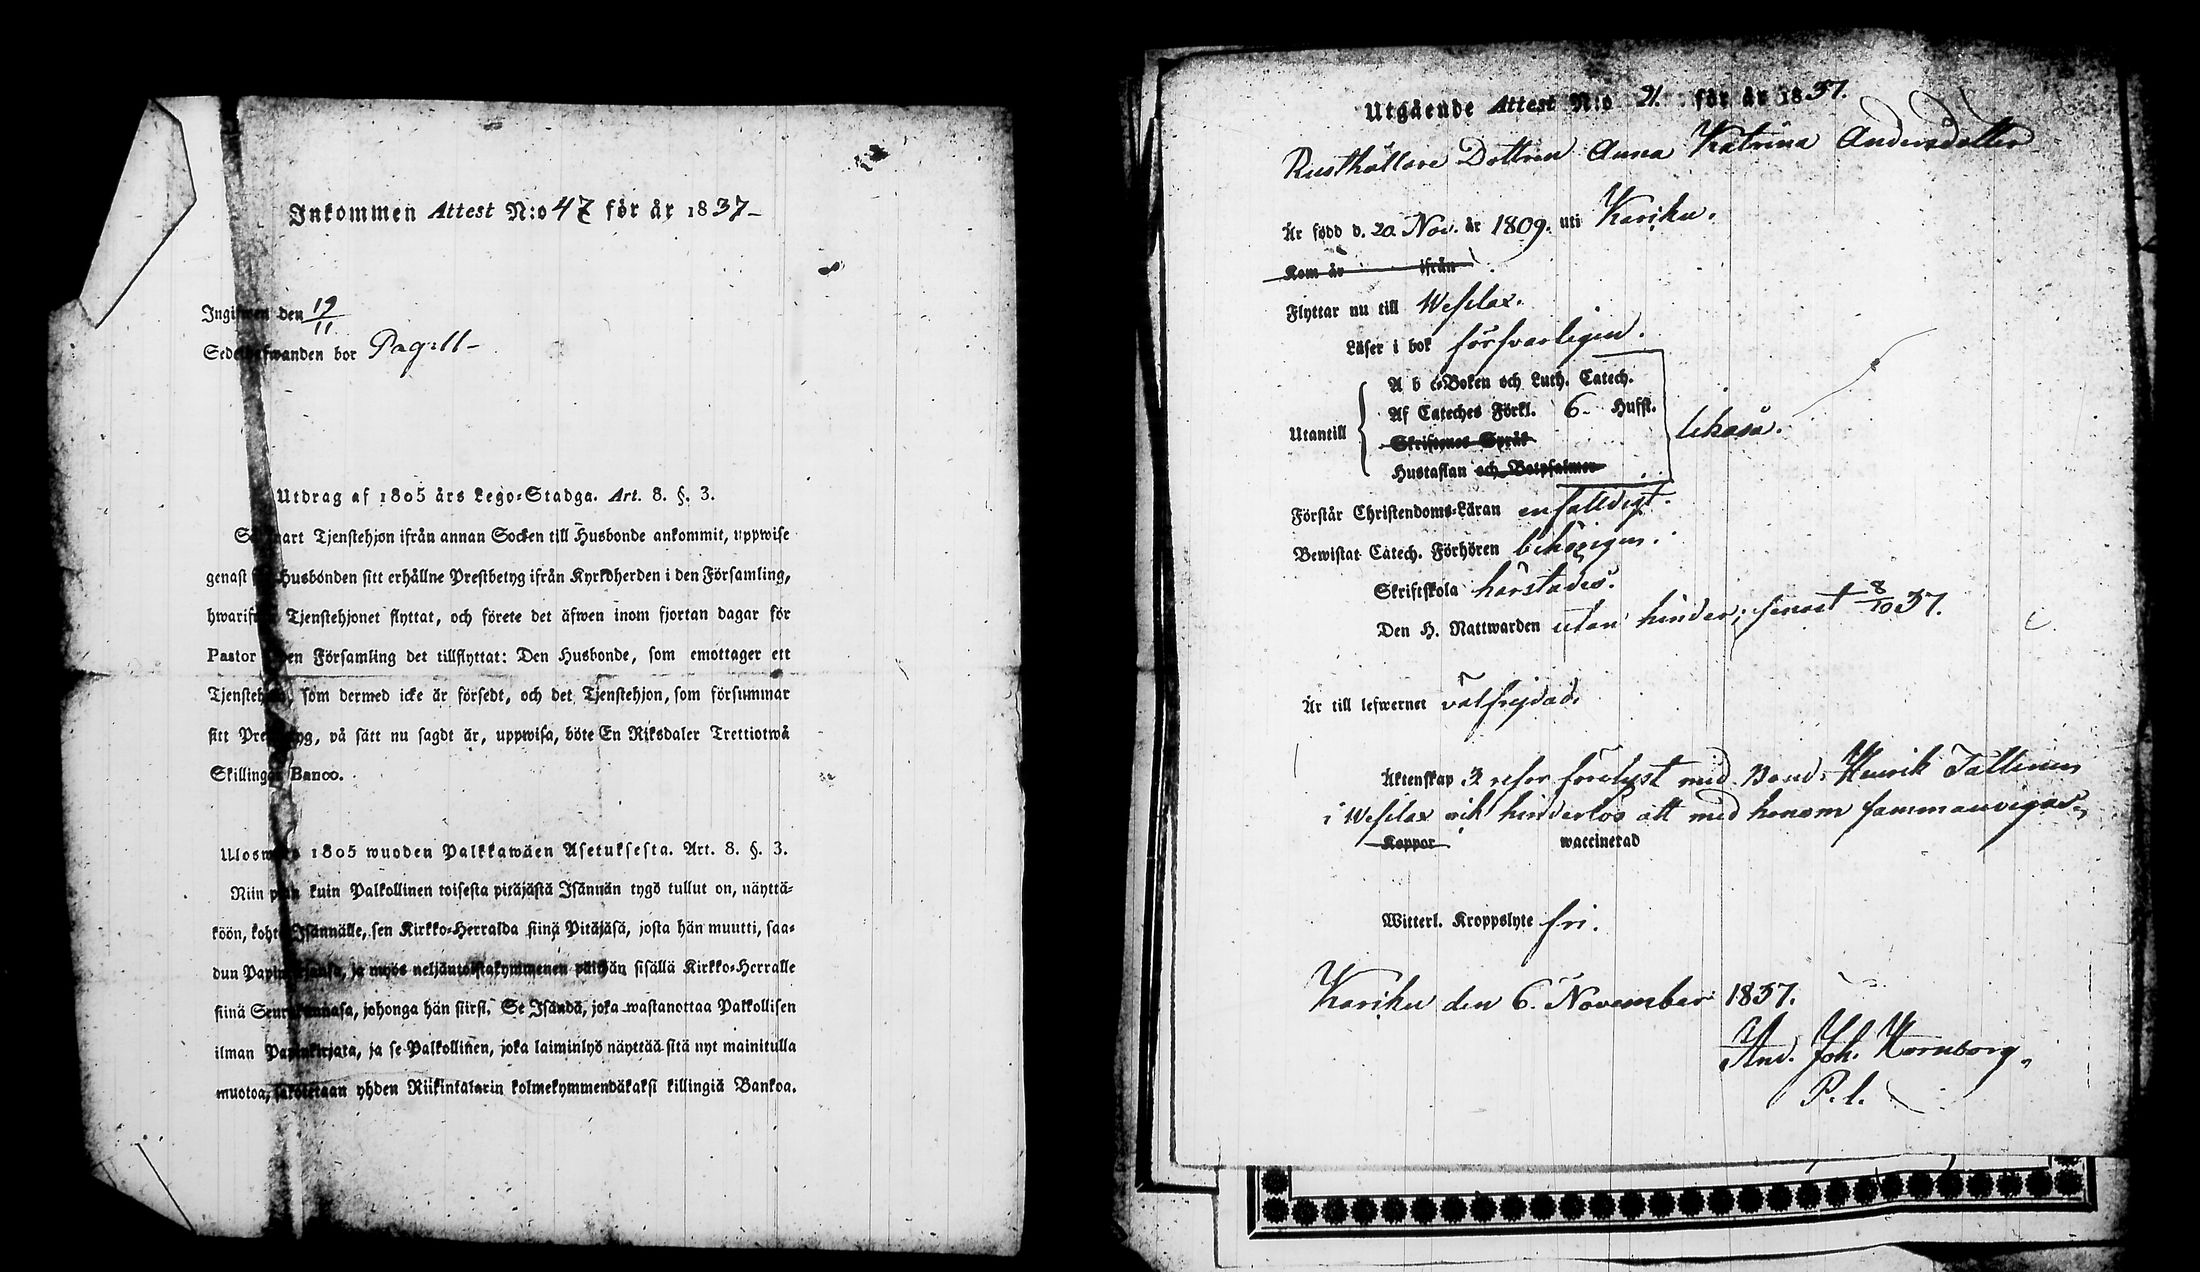 Inkommen Attest N:o 47 för år 1837 –
Ingifwen den 19/11
Sedelhafwanden bor Pag. 11 –
Utdrag af 1805 års Lego-Stadga. Art. 8. §. 3.
Så snart Tjenstehjon ifrån annan Socken till Husbonde ankommit, uppwise
genast för husbonden sitt erhållne Prestbetyg ifrån Kyrkoherden i den Församling,
hwarifrån Tjenstehjonet flyttat, och förete det äfwen inom fjortan dagar för
Pastor i den Församling det tillflyttat: Den Husbonde, som emottager ett
Tjenstehjon, som dermed icke är försedt, och det Tjenstehjon, som försummar
sitt Prestbetyg, på sätt nu sagdt är, uppwisa, böte En Riksdaler Trettiotwå
Skillingar Banco.
Ulosweto 1805 wuoden Palkkawäen Asetuksesta. Art. 8. §. 3.
Niin pian kuin Palkollinen toisesta pitäjästä Isännän tygö tullut on, näyttä-
köön, kohta Isännälle, sen Kirkko-Herralda siinä Pitäjäsä, josta hän muutti, saa-
dun Papinkirjansa, ja myös neljäntoistakymmenen päiwän sisällä Kirkko-Herralle
siinä Seurakunnasa, johonga hän siirsi. Se Isändä, joka wastanottaa Palkollisen
ilman Papinkirjata, ja se Palkollinen, joka laiminlyö näyttää sitä nyt mainitulla
muotoa, sakotetaan yhden Riikintalarin kolmekymmendäkaksi killingiä Bankoa.
Utgående Attest N:o 21. för år 1837.
Rusthållare Dottren Anna Katrina Andersdotter
Är född d. 20. Nov. år 1809. uti Kariku.
Kom år ifrån
Flyttar nu till Wesilax.
Läser i bok försvarligen.
Utantill
A b c-Boken och Luth. Catech.
Af Cateches Förkl. 6. Hufst.
Skriftenes Språk
Hustaflan och Botpsalmer
likaså.
Förstår Christendoms-Läran enfalldigt.
Bewistat Catech. Förhören behörigen.
Skriftskola härstädes.
Den H. Nattwarden utan hinder; senast 8/10 37.
Är till lefwernet välfrejdad.
Äktenskap 3 resor förelyst med Bond. Henrik Tallinen
i Wesilax och hinderlös att med honom sammanvigas.
Koppor waccinerad
Witterl. Kroppslyte fri.
Kariku den 6. November 1837.
And. Joh. Kornborg,
P. l.